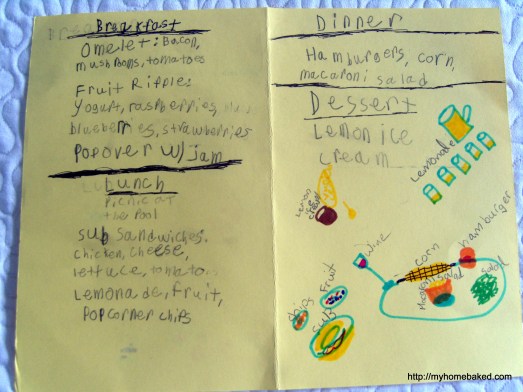 Breakfast
Omelet: Bacon,
mushroms, tomatoes
Fruit Ripple:
Yogurt, raspberries,
blueberries, strawberries
Popover w/ jam
Lunch
Picnic at
the Pool
Sub Sandwiches:
chicken, cheese,
lettuce, tomato,
Lemonade, fruit,
Popcorner chips
Dinner
Hamburgers, corn,
macaroni salad
Dessert
Lemon ice
cream
Lemonade
Lemon
ice
cream
wine
corn
hamburger
Macaroni salad
Salad
Fruit
chips
Sub
http://myhomebaked.com